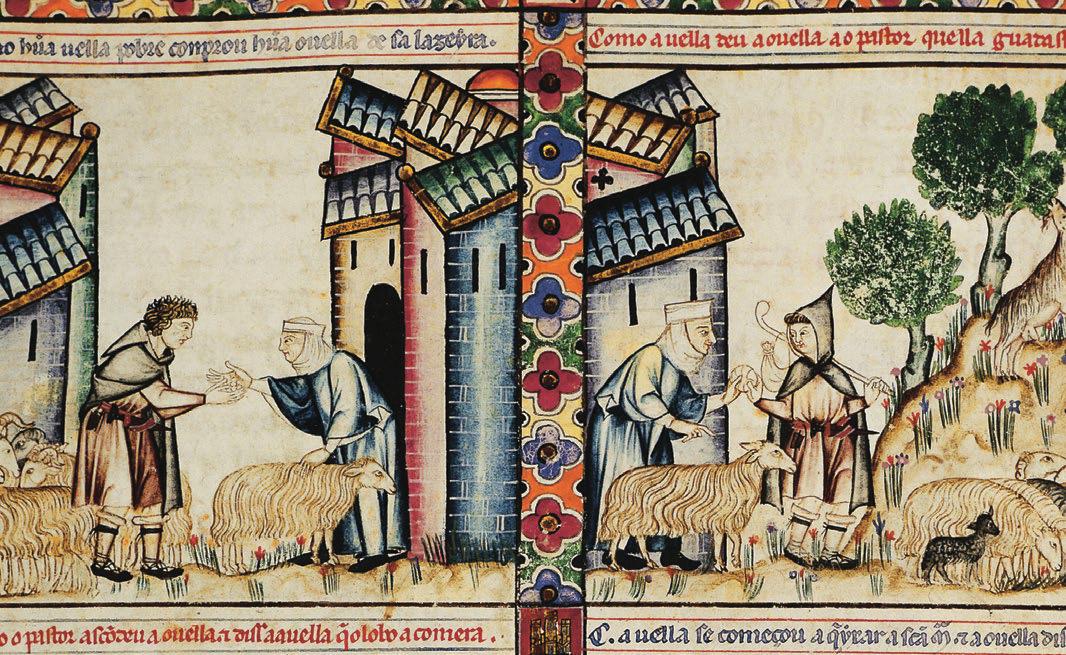 hũa uella pobre conprou hũa ouella de sa lazeyra.
Como a uella deu a ouella ao pastor que lla guardas
o pastor ascõdeu a ouella ⁊ diss aa uella q̃ o lobo a comera.
C. a uella se começou a q̃yxar a scã Mͣ ⁊ a ouella dis